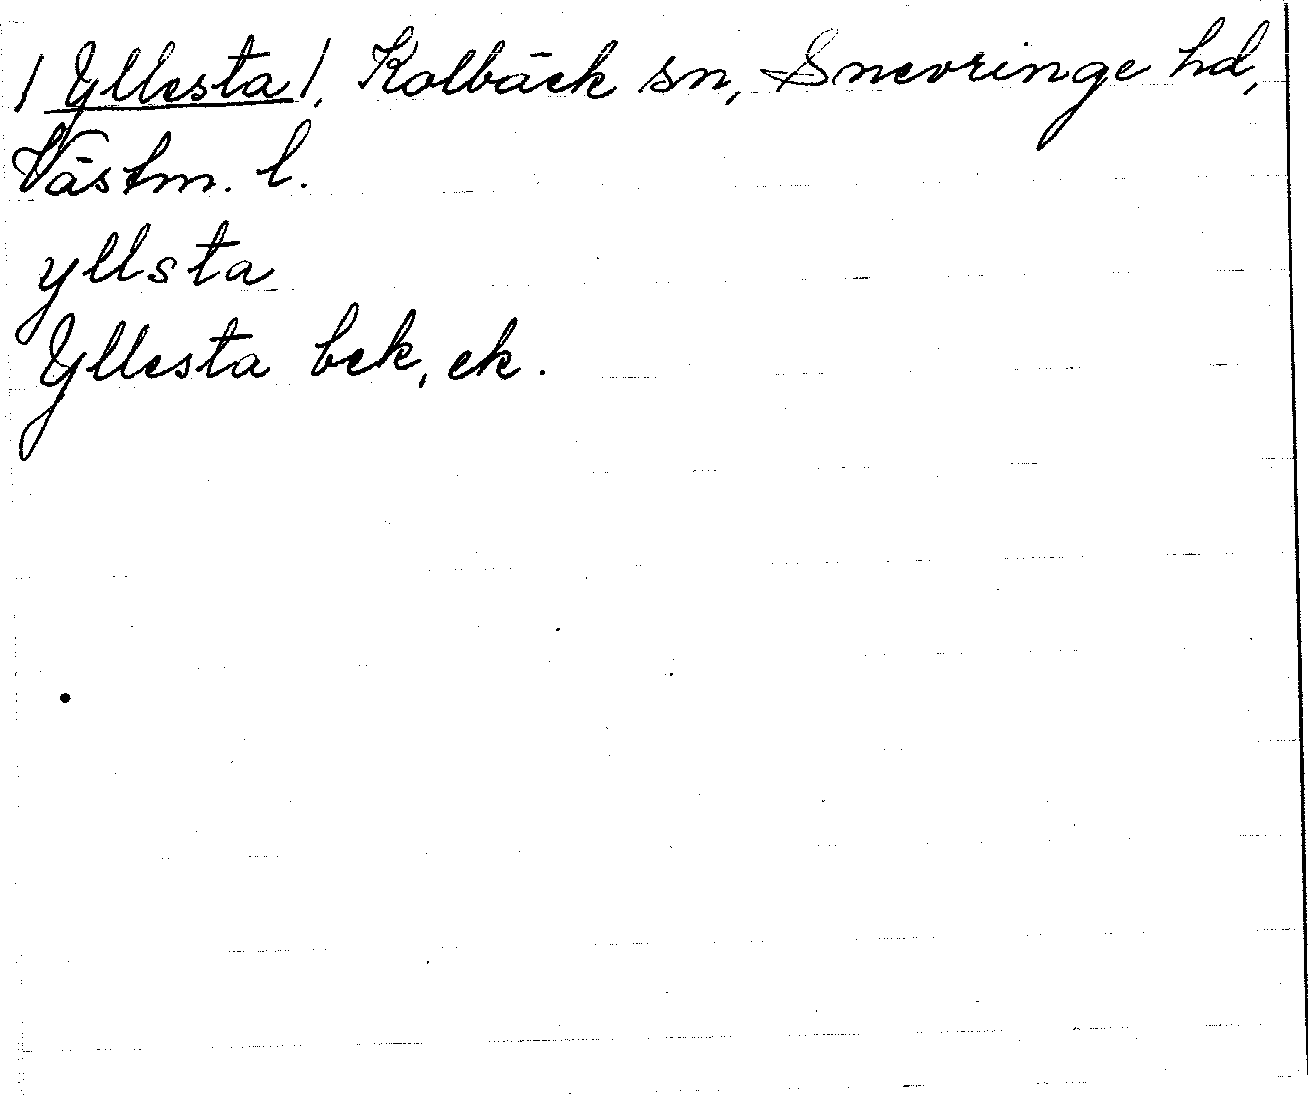 /Yllesta/, Kolbäck sn, Snevringe hd,
Västm. l.
yllsta
Yllesta bek, ek.